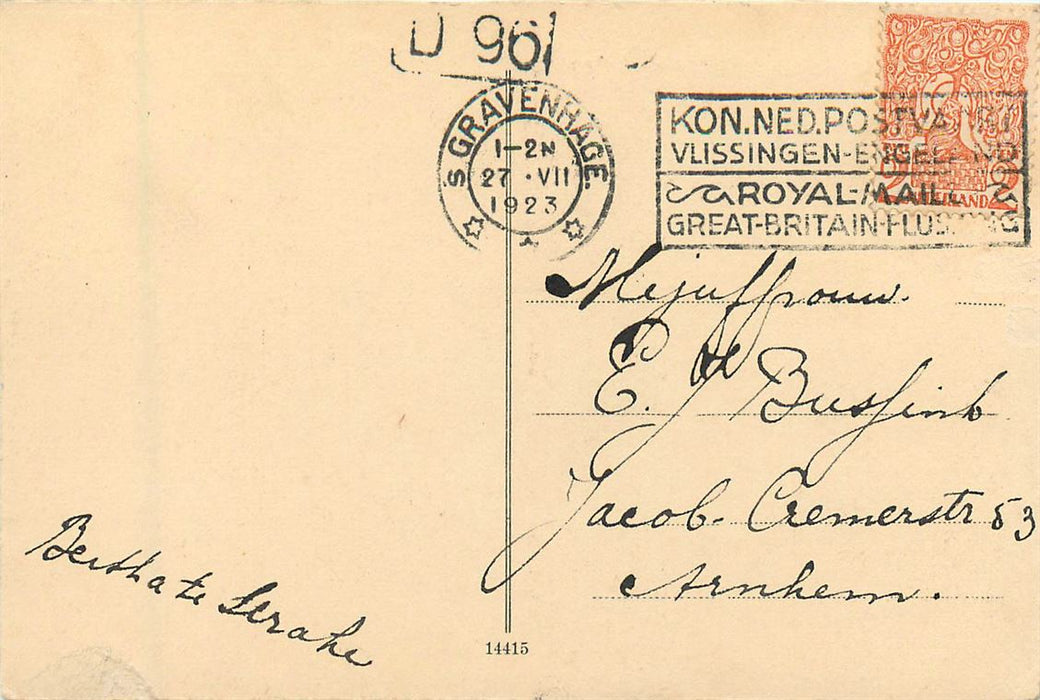 D 96
'S GRAVENHAGE.
1-2N
27 · VII
1923
KON.NED.POSTVAART
VLISSINGEN-ENGELAND
ROYAL-MAIL
GREAT-BRITAIN-FLUSHING
2 NEDERLAND 2
Mejuffrouw.
E. J. Bussink
Jacob. Cremerstr 53
Arnhem.
Bertha te
14415